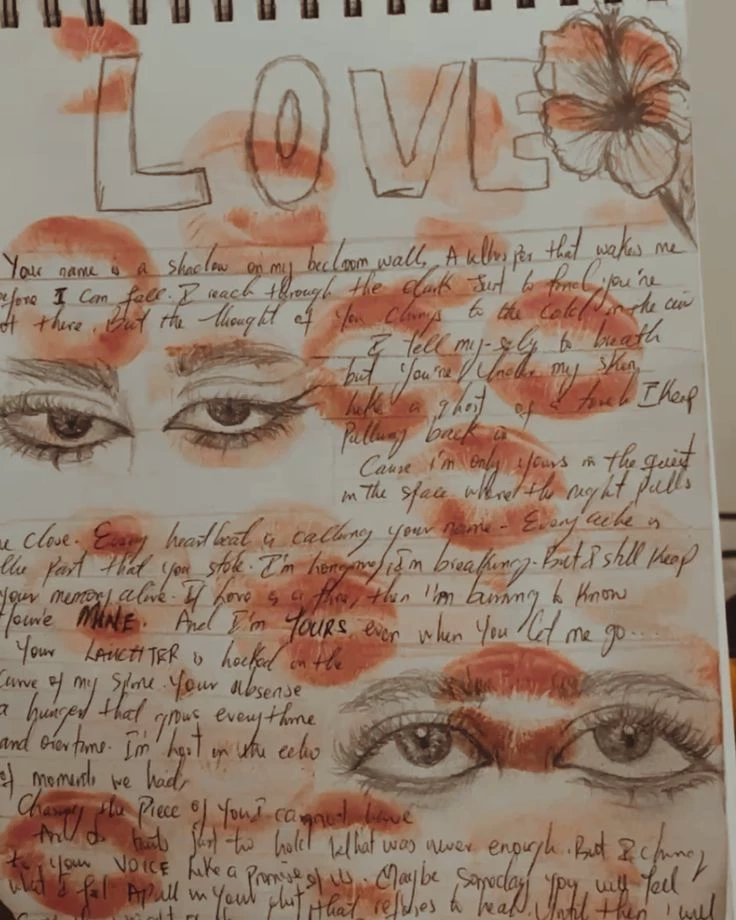 LOVE
Your name is a shadow on my bedroom wall, A whisper that wakes me
before I can fall. I reach through the dark Just to find you're
ot there. But the thought of you Clings to the cold in the air
I tell my-self to breath
but you're Under my skin
Like a ghost of a touch I Keep
Pulling back in
Cause i'm only yours in the quiet
in the space where the night pulls
e close. Every heartbeat is calling your name - Every ache is
the part that you stole. I'm I'm breaking. But I still Keep
your memory alive. If love is a fire, then I'm burning to know
You're MINE. And I'm YOURS even when You let me go...
Your LAUGHTER is hooked in the
curve of my spine. Your absense
a hunger that grows everytime
and overtime. I'm lost in the echo
of moments we had,
Chasing the Piece of You I cannot have
And it hurts just to hold What was never enough. But I cling
to your VOICE Like a Promise of us. Maybe Someday you will feel
what I feel A pull in your that refuses to heal. Until then I will